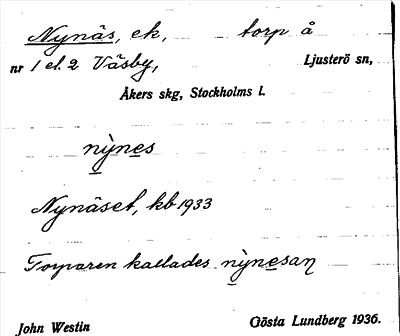 Nynäs, ek, torp å
nr 1 el. 2 Väsby, Ljusterö sn,
Åkers skg, Stockholms l.
nỳnes
Nynäset, kb 1933
Torparen kallades nỳnesaɳ
John Westin Gösta Lundberg 1936.